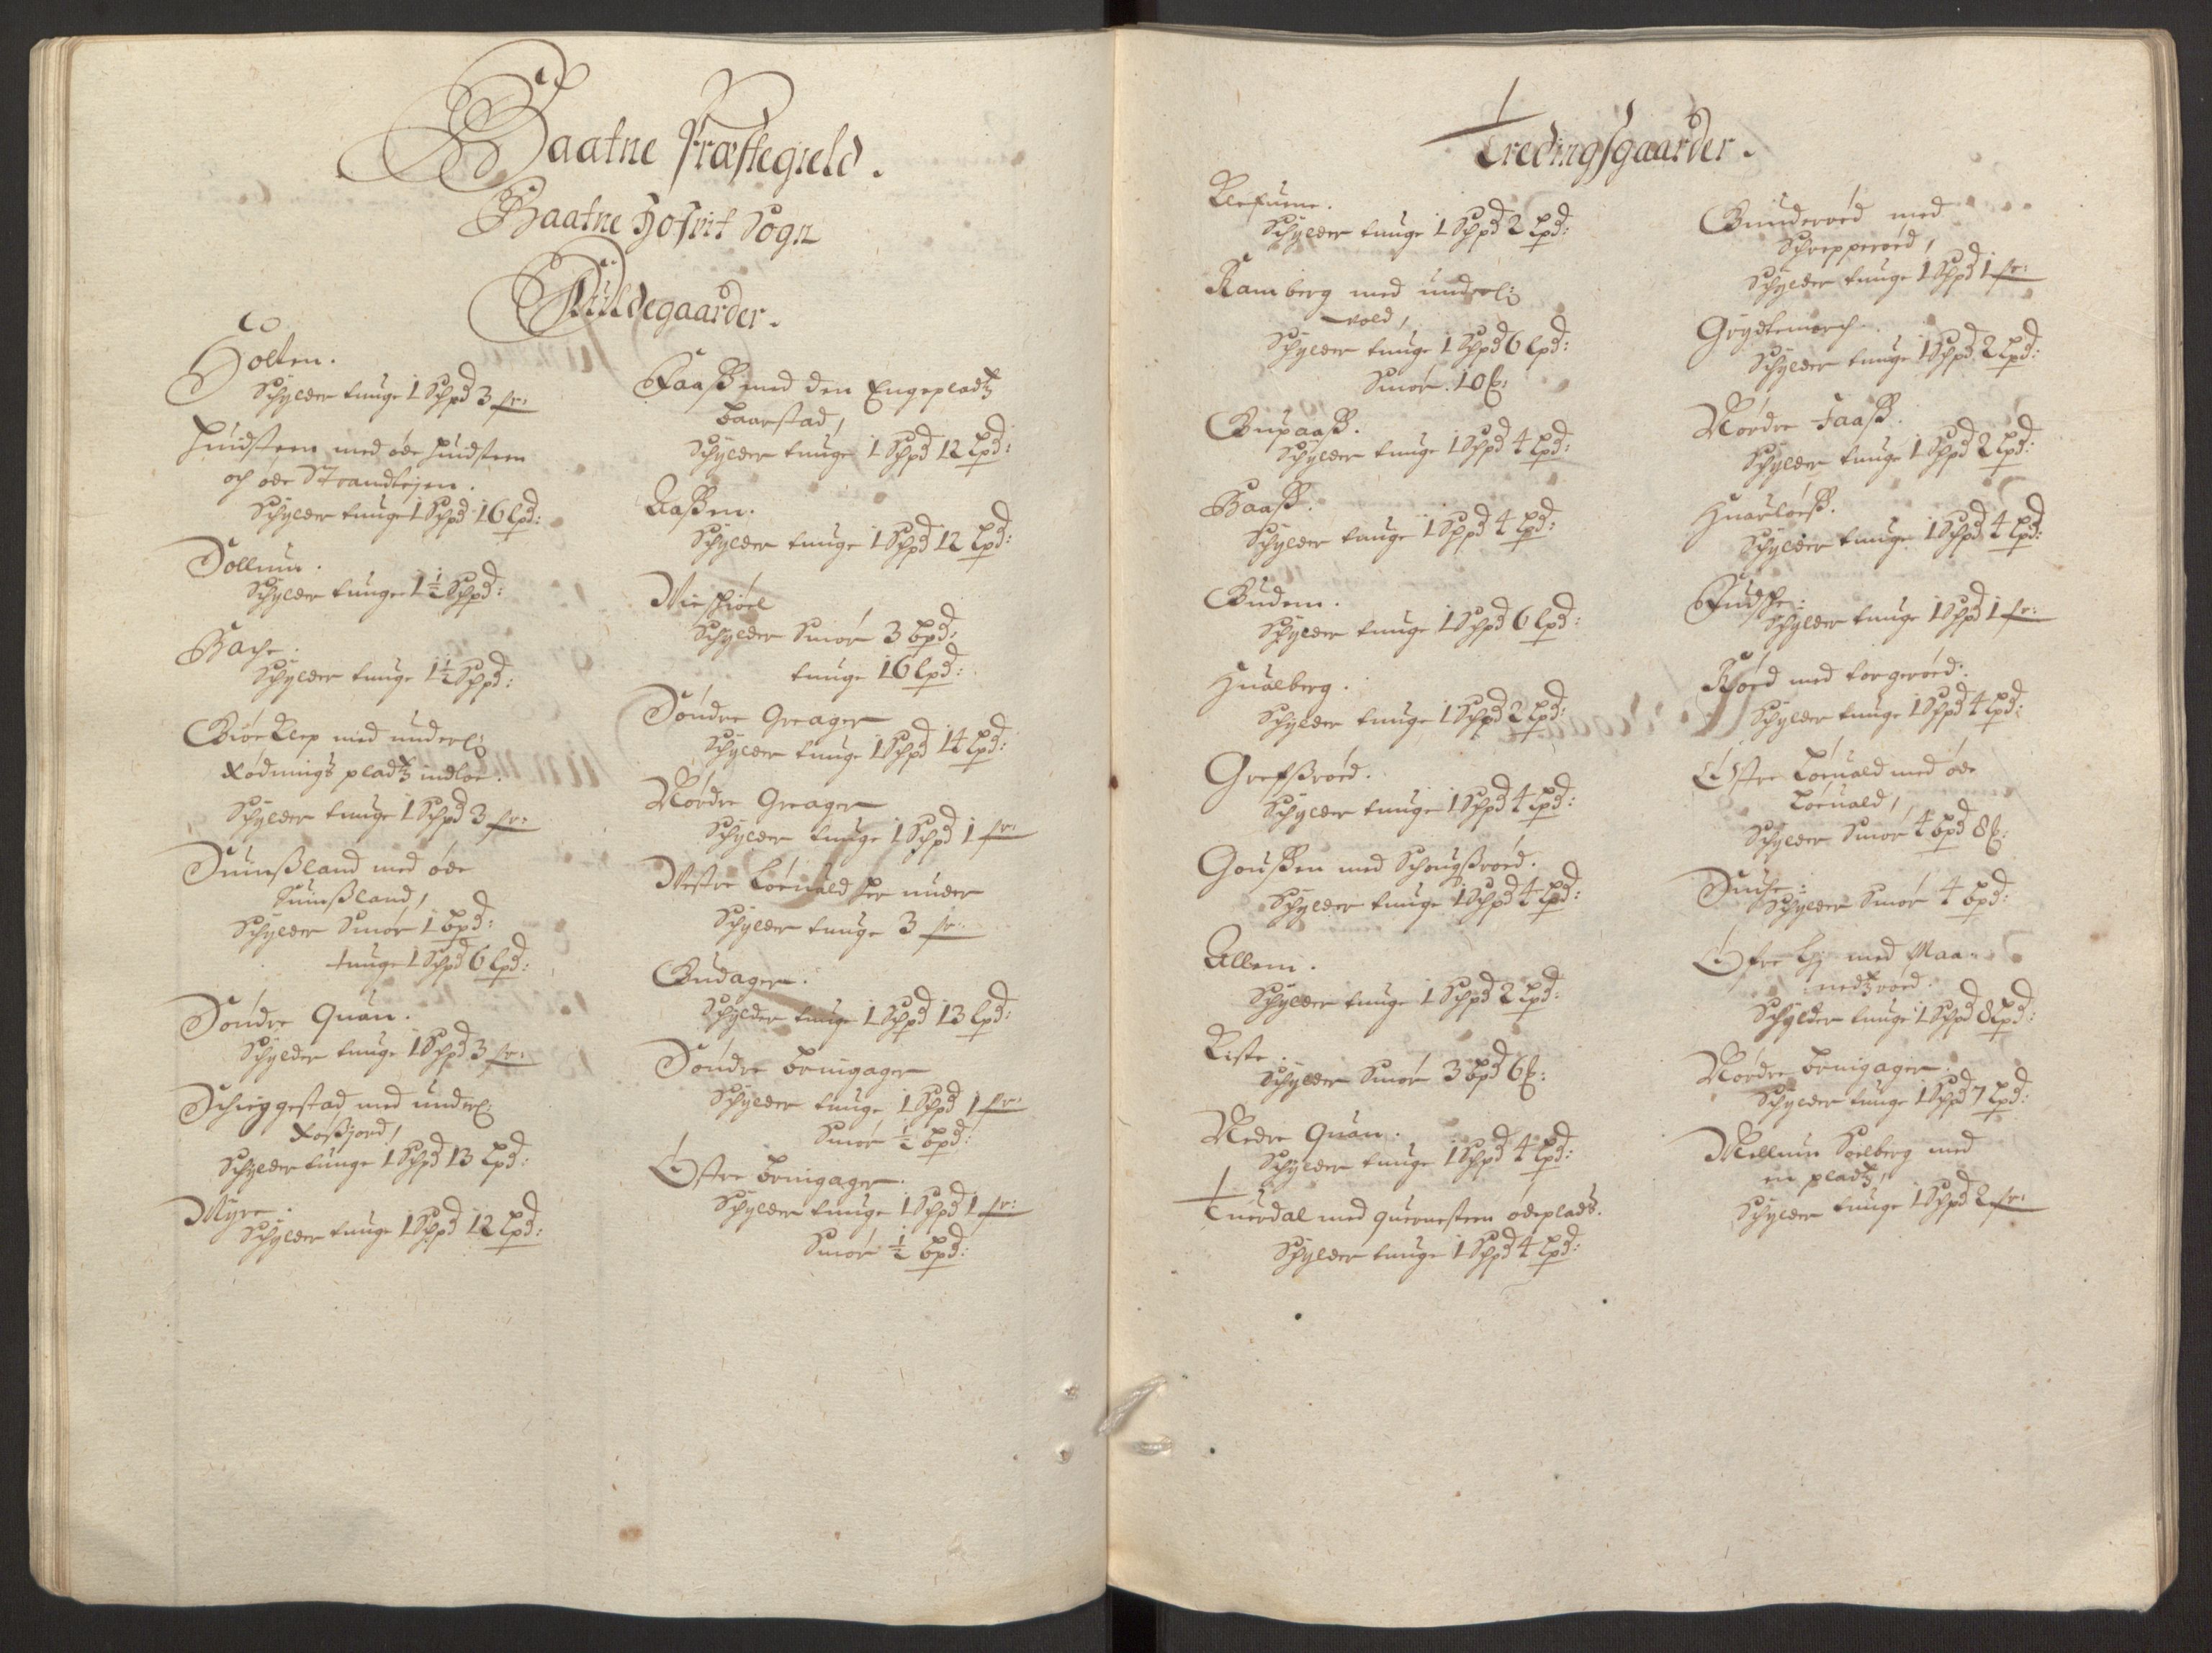 Baatne Præstegield.
Baatne Hofvit Sogn
Fuldegaarder.
Holten.
Schylder tunge 1 Schpd 3 fr:
Huidsteen med øde huidsteen
och øde Strandlejen.
Schylder tunge 1 Schpd 16 Lpd:
Sollum.
Schylder tunge 1 1/2 Schpd:
Bache.
Schylder tunge 1 1/2 Schpd:
Biørklep med underl:
Rødnings pladtz indloe.
Schylder tunge 1 Schpd 3 fr:
Suinßland med øde
Suinßland,
Schylder Smør 1 bpd:
tunge 1 Schpd 6 Lpd:
Søndre Quán.
Schylder tunge 1 Schpd 3 fr:
Schiyggestad med underl:
Roßjord,
Schylder tunge 1 Schpd 13 Lpd:
Myre.
Schylder tunge 1 Schpd 12 Lpd:
Faaß med den Engepladtz
baarstad,
Schylder tunge 1 Schpd 12 Lpd:
Aaßen.
Schylder tunge 1 Schpd 12 Lpd:
Schylder Smør 3 bpd:
tunge 16 Lpd:
Søndre Greager
Schylder tunge 1 Schpd 14 Lpd:
Nordre Greager
Schylder tunge 1 Schpd 1 fr:
Vestre Løeuald her under
Schylder tunge 3 fr:
Budager.
Schylder tunge 1 Schpd 13 Lpd:
Søndre Brinigager
Schylder tunge 1 Schpd 1 fr:
Smør 1/2 bpd:
Østre Brinigager.
Schylder tunge 1 Schpd 1 fr:
Smør 1/2 bpd:
Tredingsgaarder.
Klefuene.
Schylder tunge 1 Schpd 2 Lpd:
Ramberg med underl:
vold,
Schylder tunge 1 Schpd 6 Lpd:
Smør 10 ℔:
Bupaaß.
Schylder tunge 1 Schpd 4 Lpd:
Baaß.
Schylder tunge 1 Schpd 4 Lpd:
Budem.
Schylder tunge 1 Schpd 6 Lpd:
Hualberg.
Schylder tunge 1 Schpd 2 Lpd:
Grefßrøed.
Schylder tunge 1 Schpd 4 Lpd:
Goußen med Schougßrøed.
Schylder tunge 1 Schpd 4 Lpd:
Allem.
Schylder tunge 1 Schpd 2 Lpd:
Riste.
Schylder Smør 3 bpd 6 ℔:
Nedre Quán.
Schylder tunge 1 Schpd 4 Lpd:
Tuerdal med quernesteen ødeplads.
Schylder tunge 1 Schpd 4 Lpd:
Gunderøed med
Schrepperøed,
Schylder tunge 1 Schpd 1 fr:
Grydtemarch.
Schylder tunge 1 Schpd 2 Lpd:
Nordre Faaß.
Schylder tunge 1 Schpd 2 Lpd:
Huarløeß.
Schylder tunge 1 Schpd 4 Lpd:
Schylder tunge 1 Schpd 1 fr:
Røed med torgerøed.
Schylder tunge 1 Schpd 4 Lpd:
Østre Løeuald med øde
Løeuald,
Schylder Smør 4 bpd 8 ℔:
Schylder Smør 4 bpd:
med Maa-
nedtzrøed.
Schylder tunge 1 Schpd 8 Lpd:
Nordre Brinigager.
Schylder tunge 1 Schpd 7 Lpd:
Mellum Soelberg med
en pladtz,
Schylder tunge 1 Schpd 2 fr: